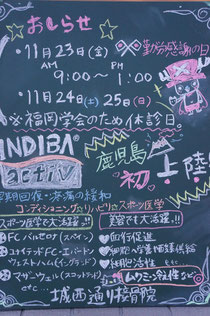 おしらせ
・11月23日(金) ※勤労感謝の日
AM PM
9:00〜1:00
・11月24日(土)25日(日)
※福岡学会のため休診日。
INDIBA
activ
鹿児島
初上陸
早期回復・疼痛の緩和
コンディショニング・リハビリ・スポーツ医学
スポーツ医学で大活躍!!
美容でも大活躍!!
FCバルセロナ(スペイン)
血行促進
ユナイテッドFC・エバートン
ウェストハム(イングランド)
細胞活性 etc…
マザーウェル(スコットランド)
ムクミ・冷え性など
etc…
城西通り整骨院